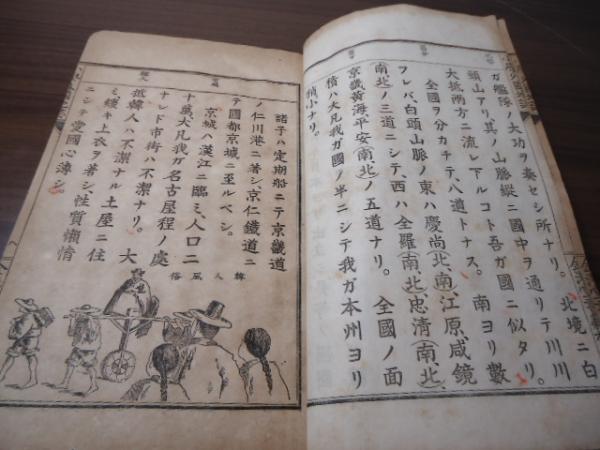 ガ艦隊ノ大功ヲ奏セシ所ナリ。北境ニ白
頭山アリ、其ノ山脈縱ニ國中ヲ通リテ川川
大抵兩方ニ流レ下ルコト吾ガ國ニ似タリ。
全國ヲ分カチテ、八道トナス。南ヨリ數
フレバ、白頭山脈ノ東ハ慶尚(北、南)江原、咸鏡
(南、北)ノ三道ニシテ、西ハ全羅(南、北)忠清(南、北)
京畿黄海平安(南北)ノ五道ナリ。全國ノ面
積ハ大凡我ガ國ノ半ニシテ我ガ本州ヨリ
稍小ナリ。
諸子ハ定期船ニテ京畿道
ノ仁川港ニ著シ京仁鐵道ニ
テ國都京城ニ至ルベシ。
京城ハ漢江ニ臨ミ、人口二
十萬、大凡我ガ名古屋程ノ處
ナレド市街ハ不潔ナリ。大
抵韓人ハ不潔ナル土屋ニ住
ミ、緩キ上衣ヲ著シ、性質懶惰
ニシテ愛國心薄シ。
韓人風俗